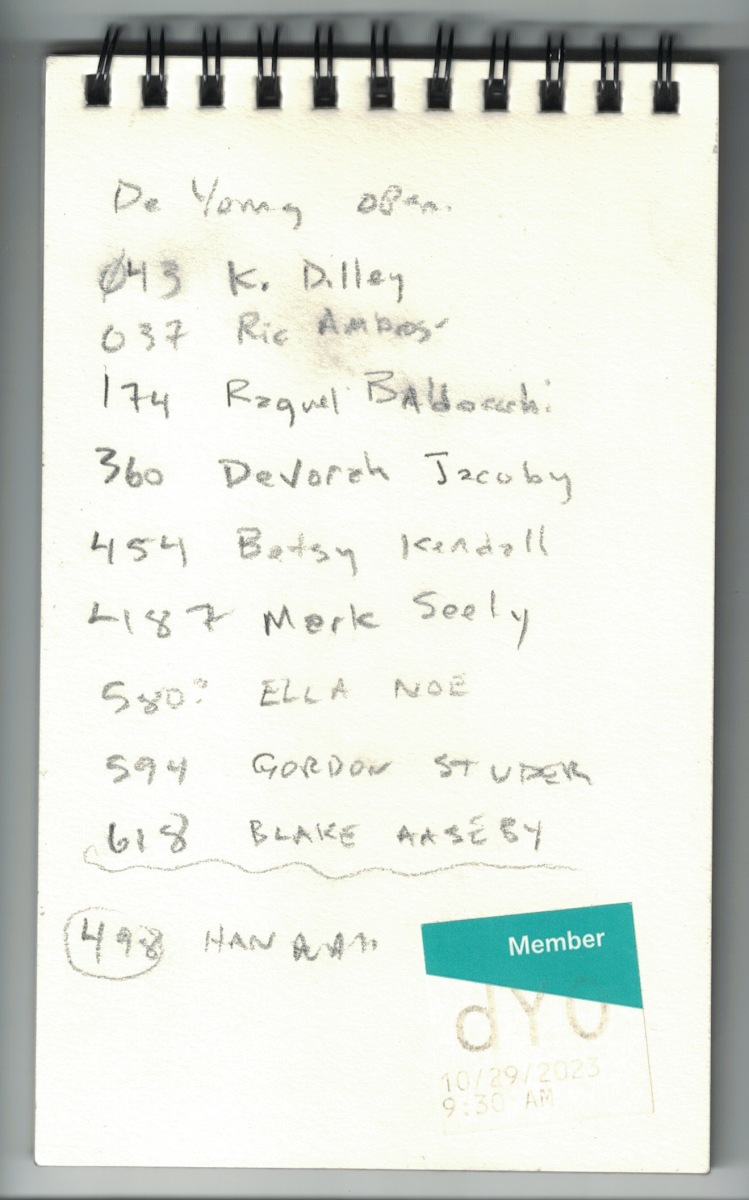 De Young open.
043 K. Dilley
037 Ric Ambrose
174 Raquel Baldocchi
360 Devorah Jacoby
454 Betsy Kendall
487 Mark Seely
580? ELLA NOE
594 GORDON STUDER
618 BLAKE AASEBY
498 HAN
Member
dYO
10/29/2023
9:30 AM